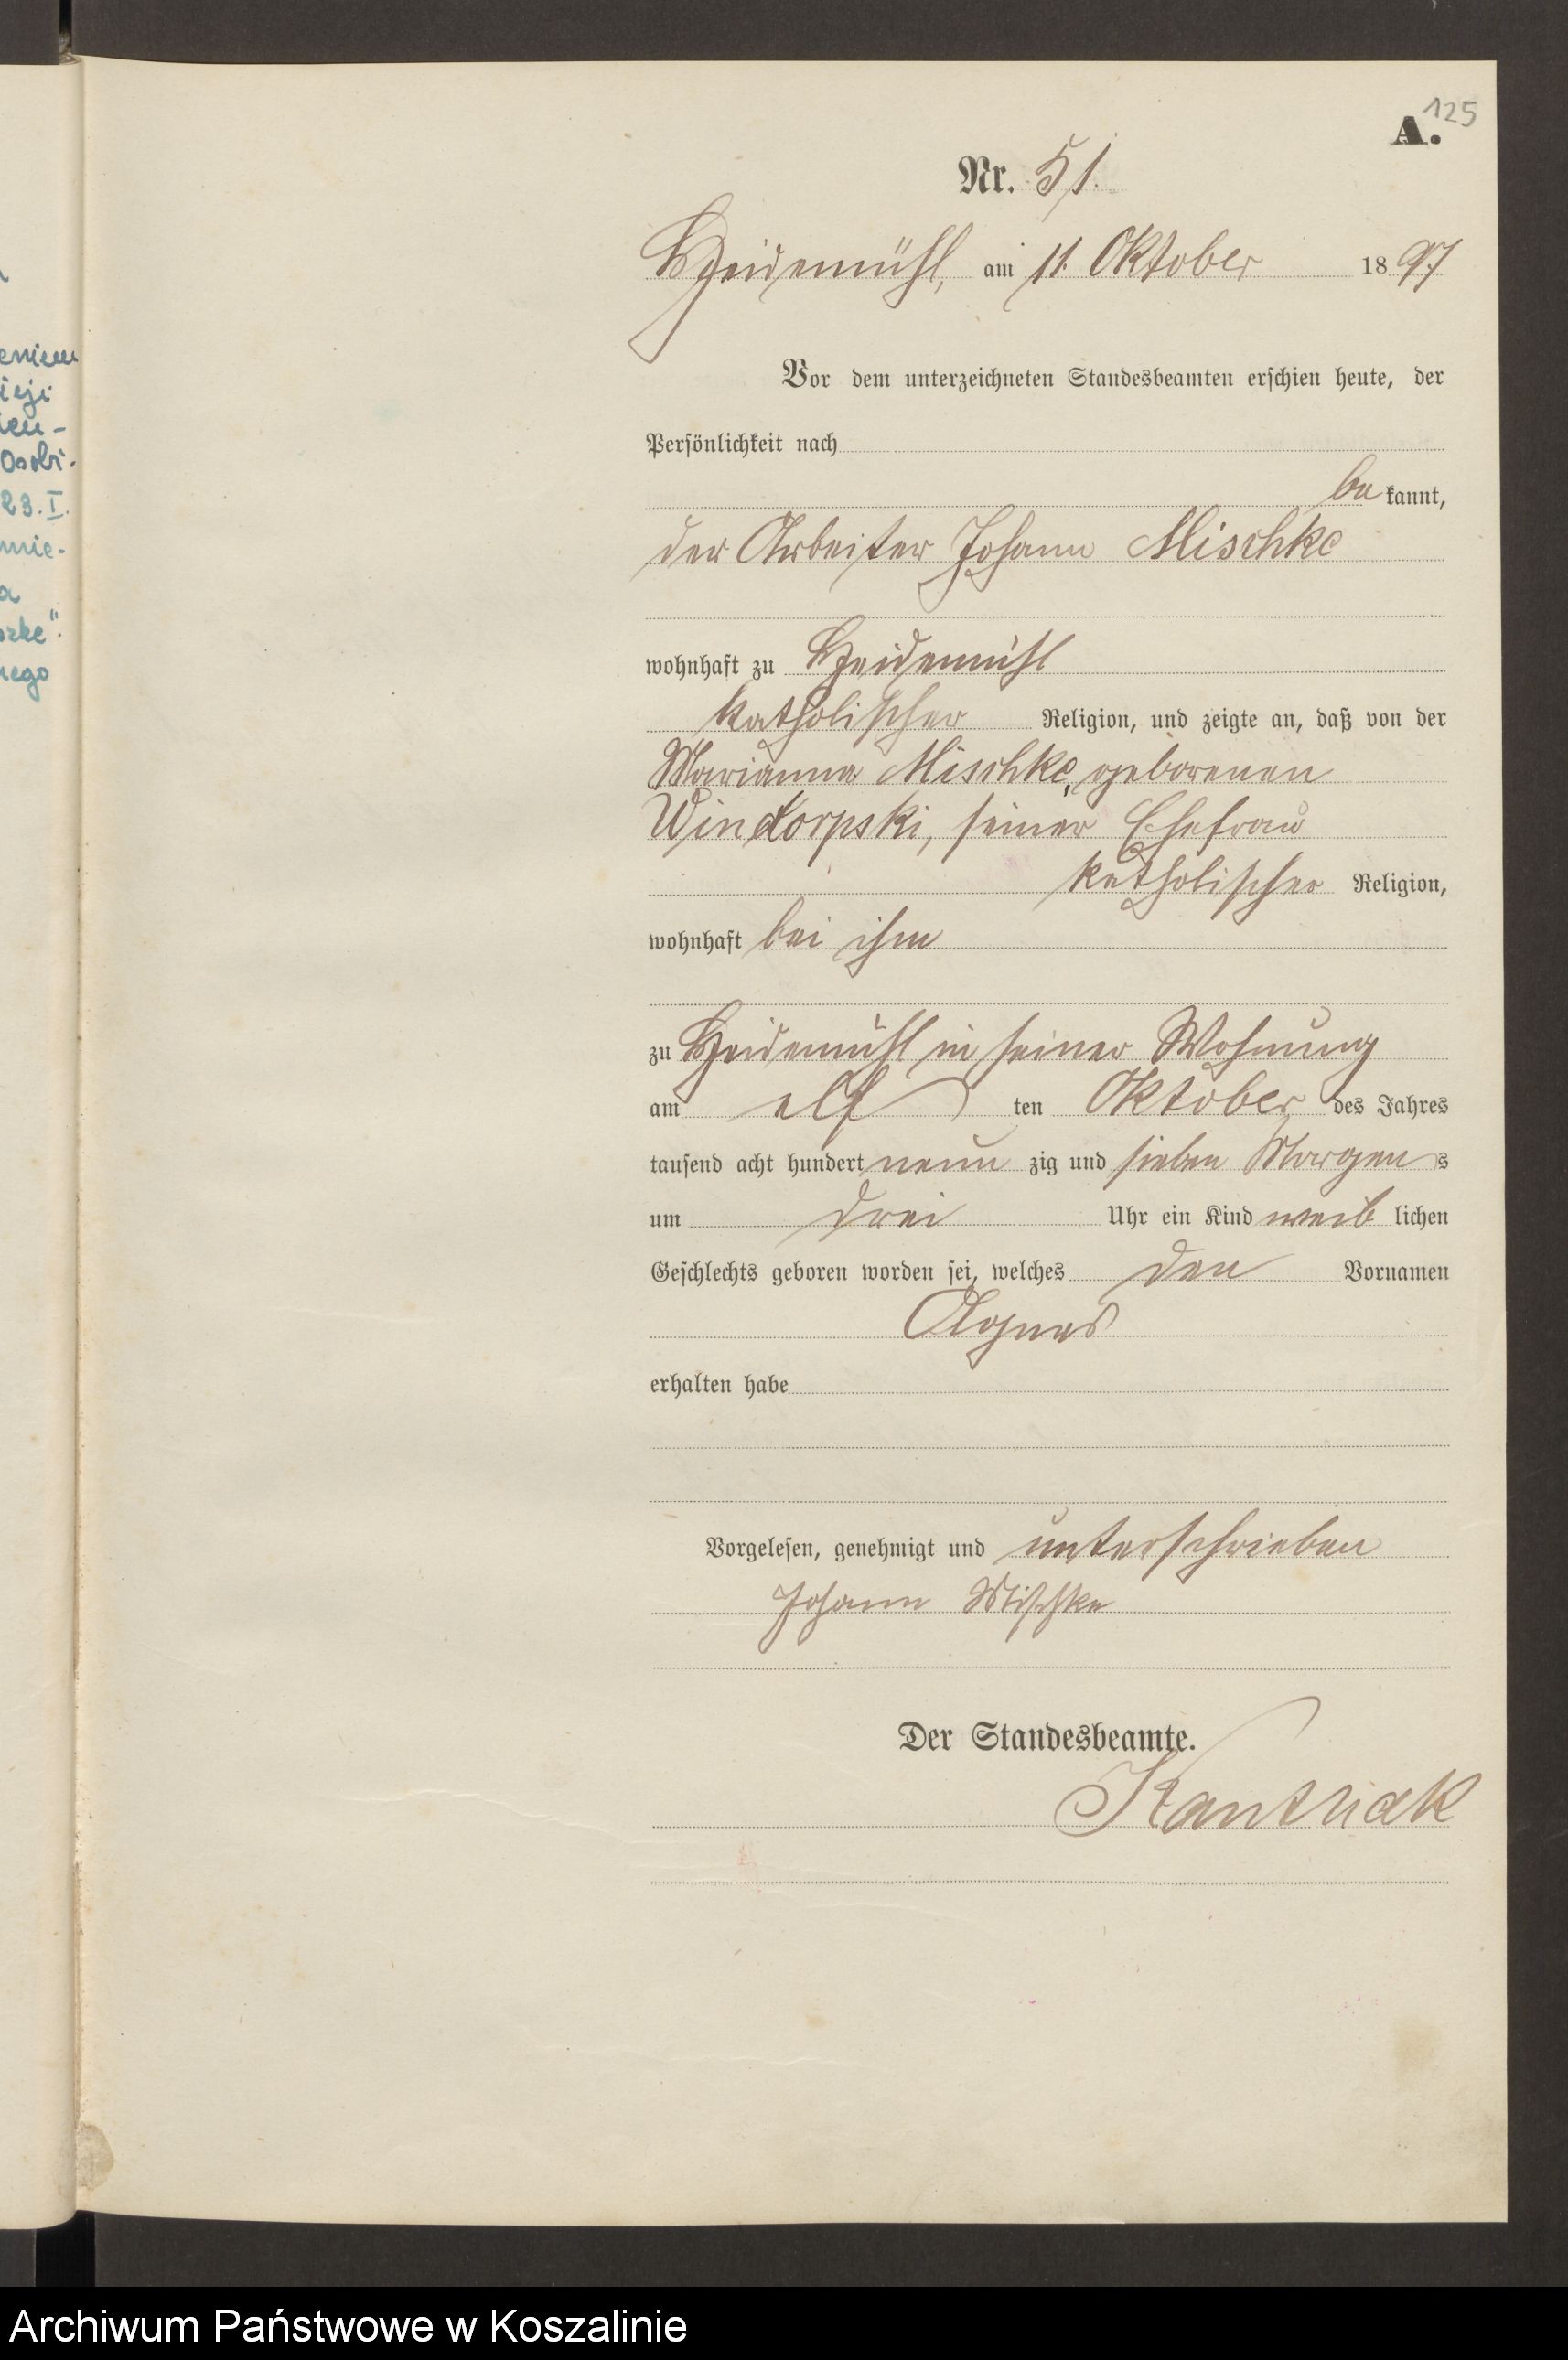 125
A.
Nr. 51.
Heidemühl, am 11. Oktober 1897
Vor dem unterzeichneten Standesbeamten erschien heute, der
Persönlichkeit nach
be kannt,
der Arbeiter Johann Mischke
wohnhaft zu Heidemühl
katholischer Religion, und zeigte an, daß von der
Marianna Mischke, geborenen
Windorpski, seiner Ehefrau
katholischer Religion,
wohnhaft bei ihm
zu Heidemühl in seiner Wohnung
am elf ten Oktober des Jahres
tausend acht hundert neun zig und sieben Morgens
um drei Uhr ein Kind weib lichen
Geschlechts geboren worden sei, welches den Vornamen
Agnes
erhalten habe
Vorgelesen, genehmigt und unterschrieben
Johann Mischke
Der Standesbeamte.
Kanthak
eniem
ieji
ien-
Osobi.
23. I.
mie-
a
szke".
nego
Archiwum Państwowe w Koszalinie